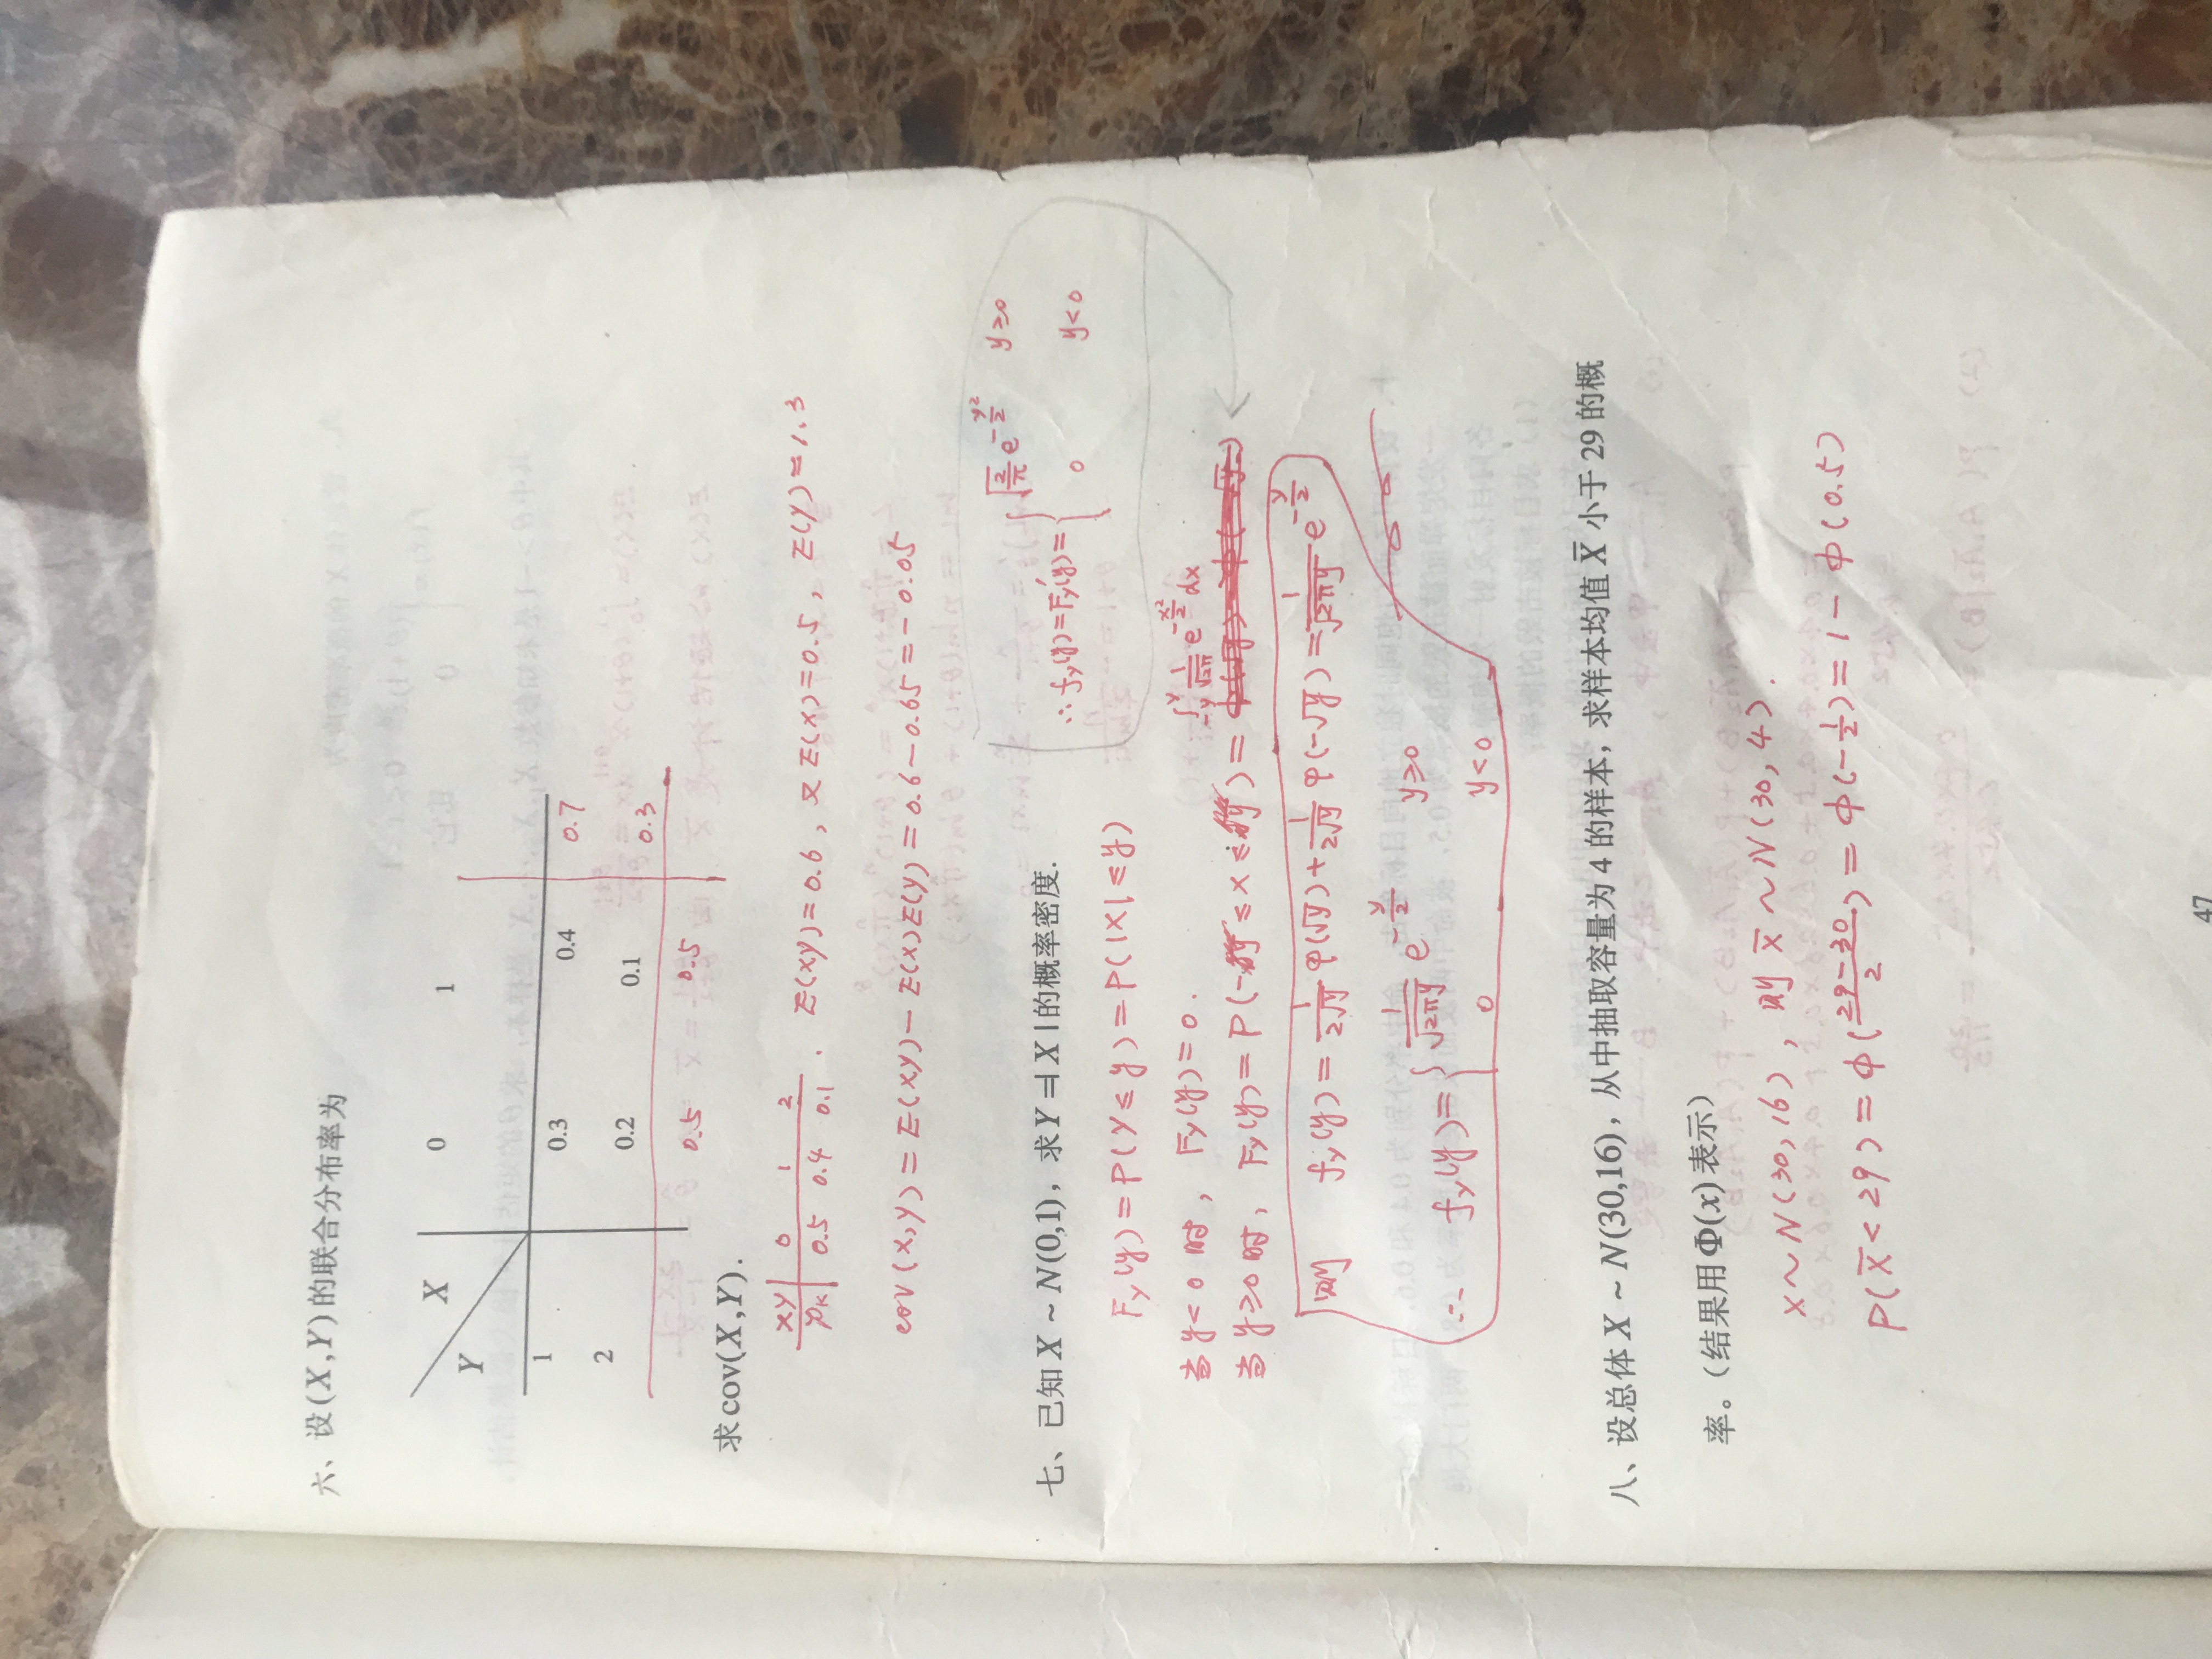 六、设(X,Y)的联合分布率为
X 0 1
Y
1 0.3 0.4 0.7
2 0.2 0.1 0.3
0.5 0.5
求cov(X,Y).
XY 0 1 2
Pk 0.5 0.4 0.1 . E(XY)=0.6, 又E(X)=0.5, E(Y)=1.3
cov(X,Y)=E(XY)-E(X)E(Y)=0.6-0.65=-0.05
七、已知X~N(0,1),求Y=|X|的概率密度.
∴ f_Y(y)=F_Y'(y)= { √(2/π) e^(-y²/2) y≥0
0 y<0
F_Y(y)=P(Y≤y)=P(|X|≤y)
当y<0时, F_Y(y)=0.
当y≥0时, F_Y(y)=P(-y≤X≤y)= ∫_{-y}^{y} 1/√(2π) e^(-x²/2) dx
则 f_Y(y)= 1/(2√y) φ(√y)+ 1/(2√y) φ(-√y)= 1/√(2πy) e^(-y/2)
∴ f_Y(y)= { 1/√(2πy) e^(-y/2) y≥0
0 y<0
八、设总体X~N(30,16),从中抽取容量为4的样本,求样本均值X̄小于29的概
率。(结果用Φ(x)表示)
X~N(30,16), 则X̄~N(30,4).
P(X̄<29)=Φ((29-30)/2)=Φ(-1/2)=1-Φ(0.5)
47